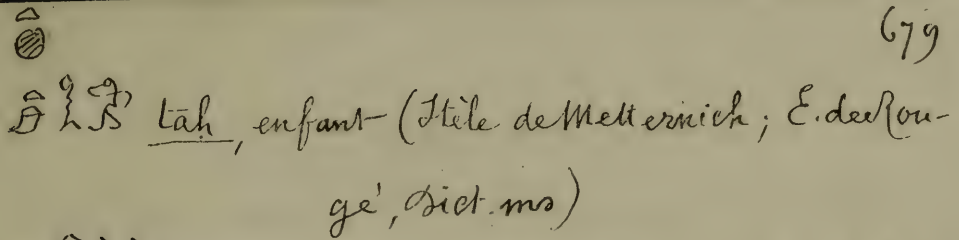 679
tāh, enfant (Stèle de Metternich; E. de Rou-
gé, Dict. ms)